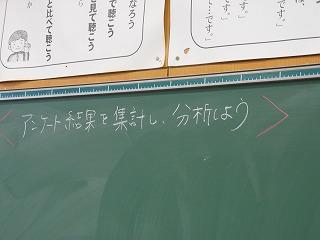 なろう
で聴こう
ら
と見て聴こう
か
と比べて聴こう
です。」
です。」
トです。」
アンケート結果を集計し、分析しよう